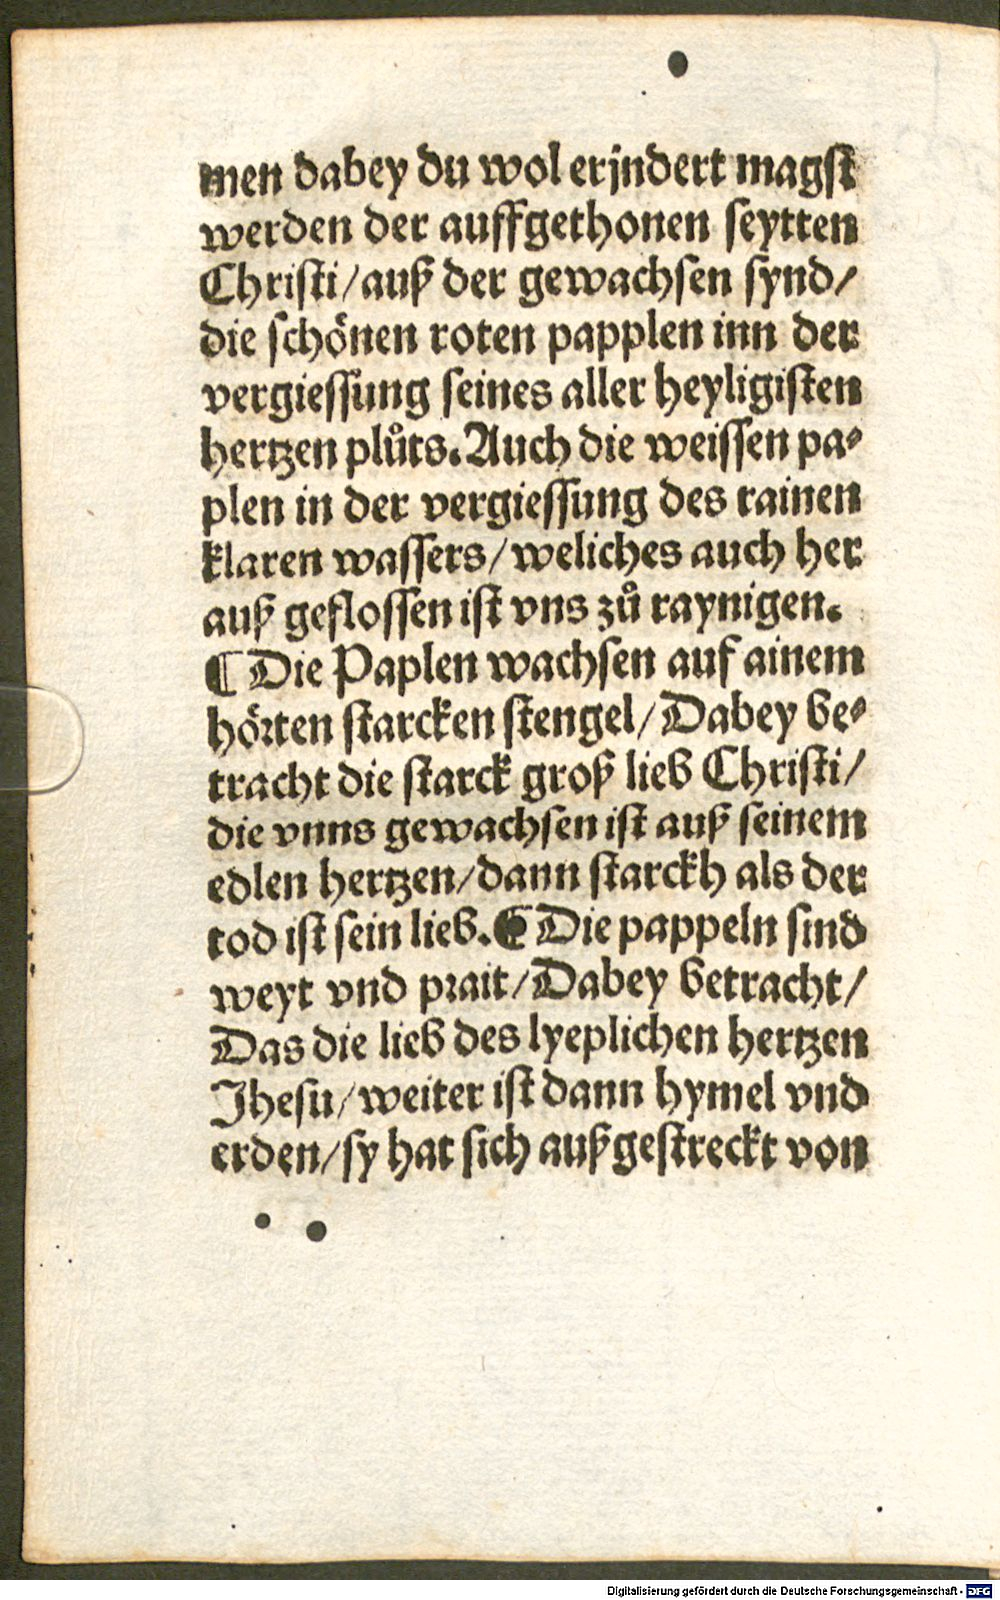 men dabey du wol erjndert magst
werden der auffgethonen seytten
Christi/auß der gewachsen synd/
die schönen roten papplen inn der
vergiessung seines aller heyligisten
hertzen plůts. Auch die weissen pa⸗
plen in der vergiessung des rainen
klaren wassers/weliches auch her
auß geflossen ist vns zů raynigen.
¶ Die Paplen wachsen auf ainem
hörten starcken stengel/Dabey be⸗
tracht die starck groß lieb Christi/
die vnns gewachsen ist auß seinem
edlen hertzen/dann starckh als der
tod ist sein lieb. ¶ Die pappeln sind
weyt vnd prait/Dabey betracht/
Das die lieb des lyeplichen hertzen
Jhesu/weiter ist dann hymel vnd
erden/sy hat sich außgestreckt von
Digitalisierung gefördert durch die Deutsche Forschungsgemeinschaft - DFG